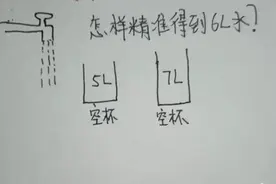 怎样精准得到6L水?
5L 7L
空杯 空杯